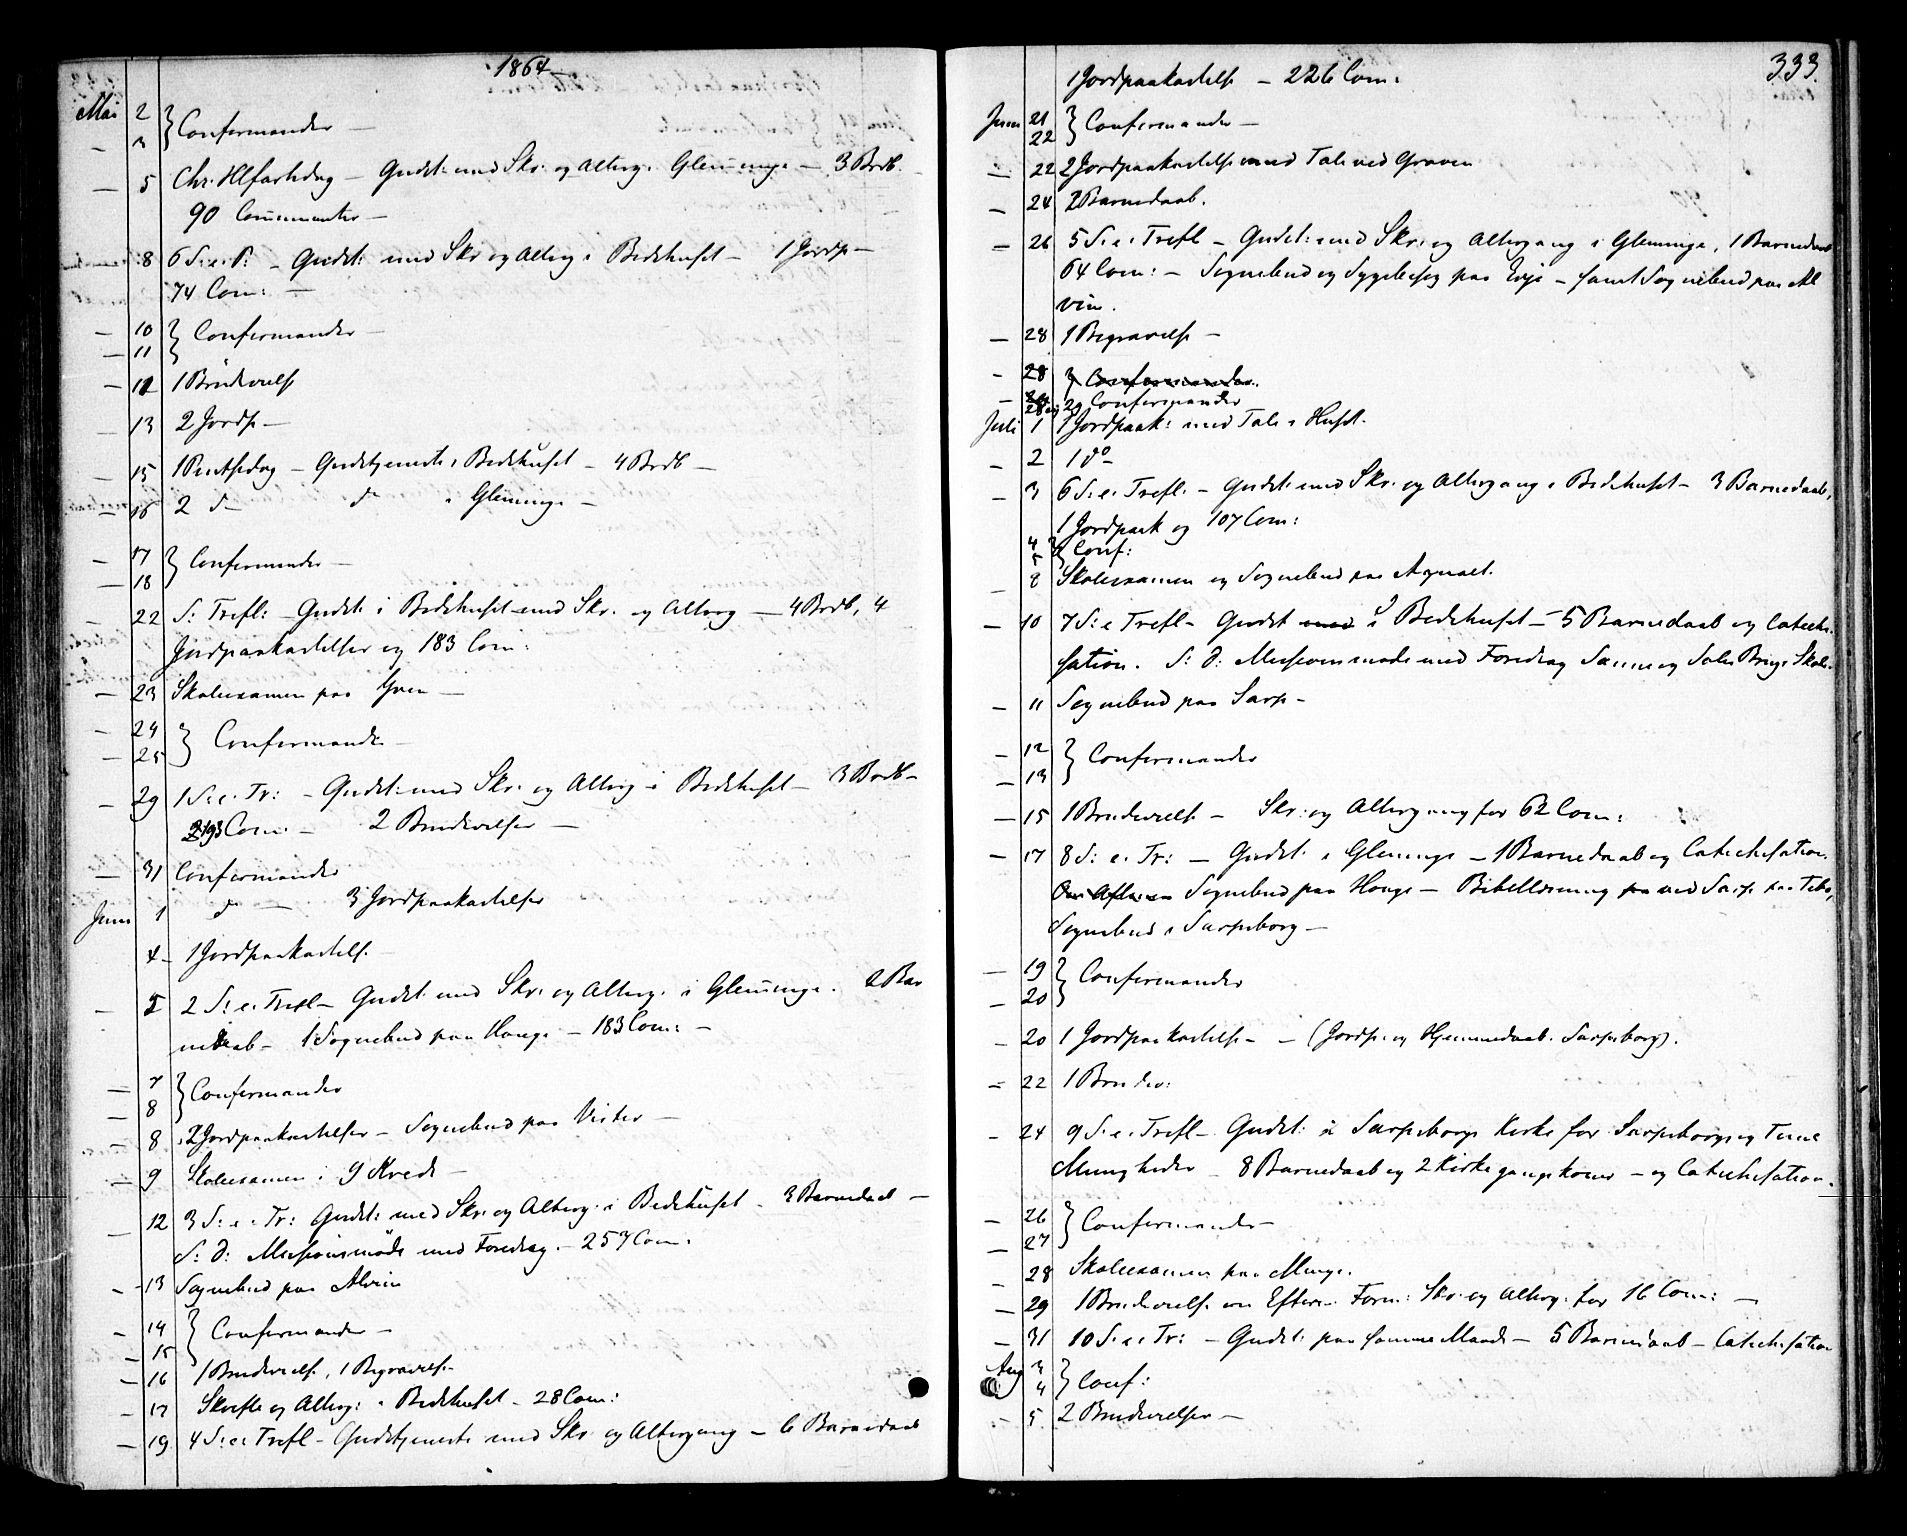 1864
Mai 2 } Confirmander —
— 3
— 5 Chr. Hfartsdag — Gudst: med Skr. og Alterg. i Glemminge — 3 Brdb.
90 Communicanter —
8 6 S. e. P. — Gudst: med Skr og Alterg i Bedehuset — 1 Jordp —
74 Com: —
— 10 } Confirmander —
— 11
— 12 1 Brudevielse
— 13 2 Jordp —
— 15 1 Pintsedag — Gudstjeneste i Bedehuset — 4 Brdb —
— 16 2 d— d— i Glemminge —
— 17 } Confirmander —
— 18
— 22 S: Trefl: — Gudst. i Bedehuset med Skr. og Alterg — 4 Brdb, 4
Jordpaakastelser og 183 Com:
— 23 Skoleexamen paa —
— 24 } Confirmander —
— 25
— 29 1 S. e. Tr: — Gudst: med Skr. og Alterg i Bedehuset — 3 Brdb —
193 Com: — 2 Brudevielser —
— 31 Confirmander
Juni 1 d — 3 Jordpaakastelser
4 — 1 Jordpaakastelse
— 5 2 S. e. Trefl — Gudst. med Skr. og Alterg. i Glemminge. 2 Bar
nedaab — 1 Sognebud paa Hauge — 183 Com: —
— 7 } Confirmander
— 8
— 8 2 Jordpaakastelser — Sognebud paa Vister —
— 9 Skoleexamen i 9 Kreds —
— 12 3 S. e. Tr: Gudst: med Skr. og Alterg. i Bedehuset — 3 Barnedaab —
S: D: Missionsmøde med Foredrag. — 257 Com.
— 13 Sognebud paa Alvim
— 14 } Confirmander —
— 15
— 16 1 Brudevielse, 1 Begravelse
— 17 Skrifte og Alterg: i Bedehuset — 28 Com:
— 19 4 S: e: Trefl — Gudstjeneste med Skr og Altergang — 6 Barnedaab
333.
1 Jordpaakastelse — 226 Com:
Juni 21 } Confirmander —
22
— 22 2 Jordpaakastelser med Tale ved Graven
— 24 2 Barnedaab.
— 26 5 S. e. Trefl — Gudst: med Skr. og Altergang i Glemminge, 1 Barnedaab
64 Com: — Sognebud og Sygebesøg paa Evje — samt Sognebud paa Al
vim.
— 28 1 Begravelse —
— 28 } Confirmander.
— 28 og 29 Confirmander
Juli 1 1 Jordpaak: med Tale i Huset.
— 2 1 do —
— 3 6 S. e. Trefl. — Gudst: med Skr. og Altergang i Bedehuset — 3 Barnedaab,
1 Jordpaak og 107 Com:
4 } Conf:
5
— 8 Skoleexamen og Sognebud paa
— 10 7 S: e Trefl — Gudst med i Bedehuset — 5 Barnedaab og Catechi-
sation. S: D: Missionsmøde med Foredrag Skole
— 11 Sognebud paa Sarp —
— 12 } Confirmander
— 13
— 15 1 Brudevielse — Skr: og Altergang for 62 Com:
— 17 8 S: e. Tr: — Gudst. i Glemminge — 1 Barnedaab og Catechisation.
Om Aftenen Sognebud paa Hauge — Bibellæsning paa ved Sarp
Sognebud i Sarpsborg —
— 19 } Confirmander
— 20
— 20 1 Jordpaakastelse — — (Jordp. og Hjemmedaab. Sarpsborg).
— 22 1 Brudev:
— 24 9 S. e. Trefl — Gudst: i Sarpsborgs Kirke for Sarpsborgs og Tune
Menigheder — 8 Barnedaab og 2 Kirkegangskoner — og Catechisation.
— 26 } Confirmander —
— 27
— 28 Skoleexamen paa Minge.
— 29 1 Brudevielse om Efterm. Form: Skr. og Alterg. for 16 Com: —
— 31 10 S. e. Tr: — Gudst: paa samme Maade — 5 Barnedaab — Catechisation
Aug 3 } Conf:
4
— 5 2 Brudevielser —